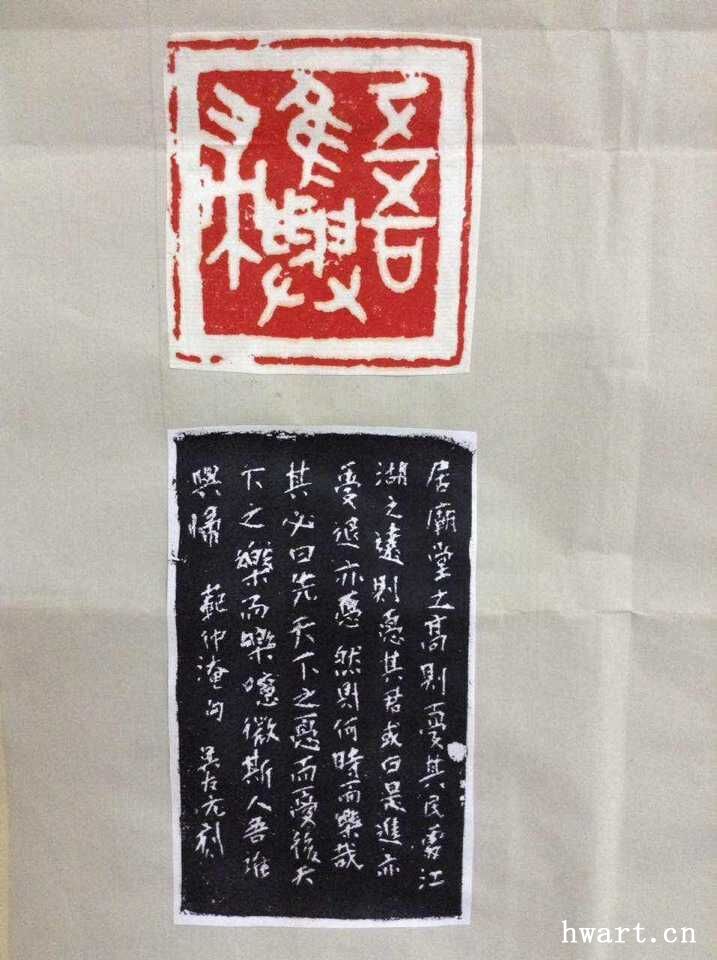 吾誰與歸
居廟堂之高則憂其民處江
湖之遠則憂其君或曰是進亦
憂退亦憂然則何時而樂哉
其必曰先天下之憂而憂後天
下之樂而樂噫微斯人吾誰
與歸 範仲淹句 吳 刻
hwart.cn